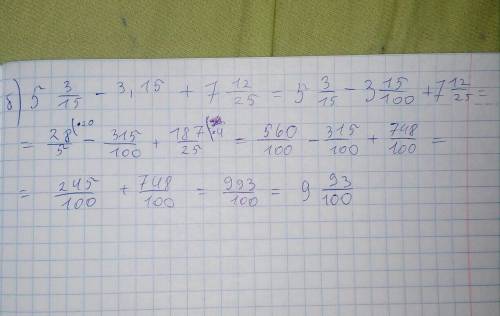 б) 5 3/15 - 3,15 + 7 12/25 = 5 3/15 - 3 15/100 + 7 12/25 =
= 28/5 (·20 - 315/100 + 187/25 (·4 = 560/100 - 315/100 + 748/100 =
= 245/100 + 748/100 = 993/100 = 9 93/100